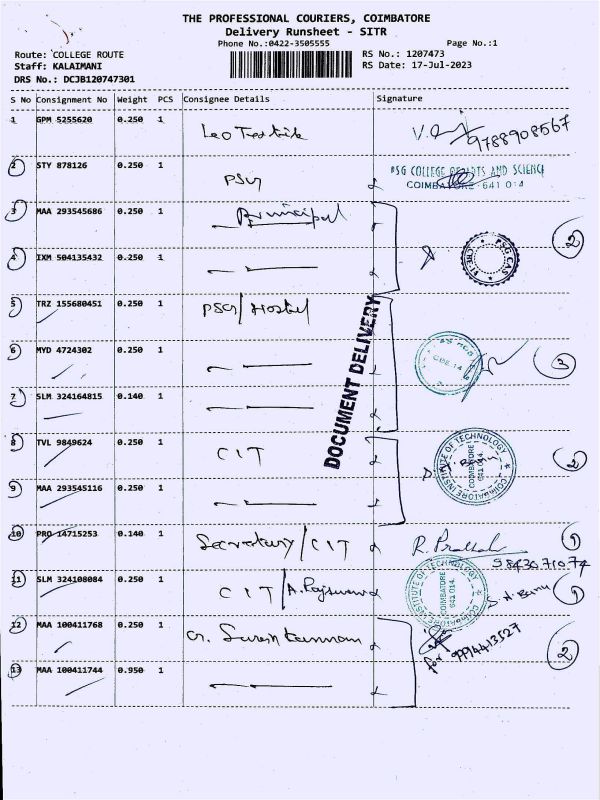 THE PROFESSIONAL COURIERS, COIMBATORE
Delivery Runsheet - SITR
Phone No.:0422-3505555 Page No.:1
Route: COLLEGE ROUTE RS No.: 1207473
Staff: KALAIMANI RS Date: 17-Jul-2023
DRS No.: DCJB120747301
S No Consignment No Weight PCS Consignee Details Signature
1 GPM 5255620 0.250 1 9788908567
2 STY 878126 0.250 1 PSG
PSG COLLEGE OF ARTS AND SCIENCE
COIMBATORE - 641 014
3 MAA 293545686 0.250 1 Principal
4 IXM 504135432 0.250 1 PSG CAS 2
5 TRZ 155680451 0.250 1 PSG/Hostel
DOCUMENT DELIVERY
6 MYD 4724302 0.250 1 3
7 SLM 324164815 0.140 1
8 TVL 9849624 0.250 1 CIT
COIMBATORE INSTITUTE OF TECHNOLOGY
COIMBATORE
641 014.
2
9 MAA 293545116 0.250 1
10 PRO 14715253 0.140 1 Secretary/CIT 1
11 SLM 324108084 0.250 1 CIT/
COIMBATORE INSTITUTE OF TECHNOLOGY
COIMBATORE
641 014.
1
12 MAA 100411768 0.250 1 G. Suresh Kannan
for 9994413527
2
13 MAA 100411744 0.950 1